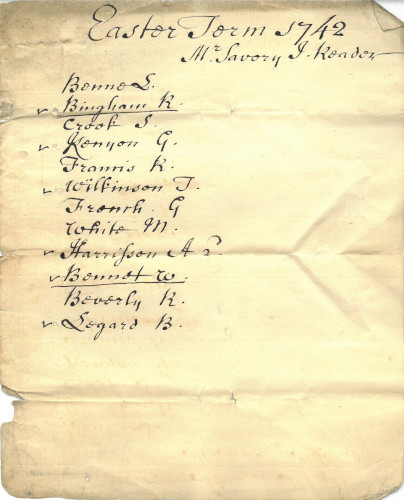 Easter Term 1742
Mr Savory J. Reader
Benne L.
✓ Bingham R.
Crook S.
✓ Kenyon G.
Francis R.
✓ Wilkinson T.
French G
White M.
✓ Harrisson A
✓ Bennet W.
Beverly R.
✓ Legard B.